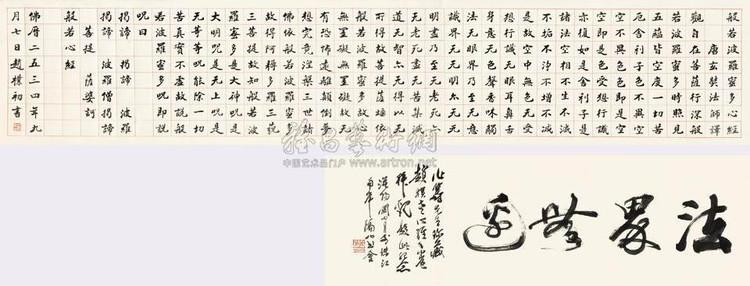 般若波羅蜜多心經
唐玄奘法師譯
觀自在菩薩行深般
若波羅蜜多時照見
五蘊皆空度一切苦
厄舍利子色不異空
空不異色色即是空
空即是色受想行識
亦復如是舍利子是
諸法空相不生不滅
不垢不淨不增不減
是故空中无色无受
想行識无眼耳鼻舌
身意无色聲香味觸
法无眼界乃至无意
識界无无明亦无无
明盡乃至无老死亦
无老死盡无苦集滅
道无智亦无得以无
所得故菩提薩埵依
般若波羅蜜多故心
無罣礙無罣礙故無
有恐怖遠離顛倒夢
想究竟涅槃三世諸
佛依般若波羅蜜多
故得阿耨多羅三藐
三菩提故知般若波
羅蜜多是大神呪是
大明呪是无上呪是
无等等呪能除一切
苦真實不虛故說般
若波羅蜜多呪即說
呪曰
揭諦 揭諦 波羅
揭諦 波羅僧揭諦
菩提 薩婆訶
般若心經
佛曆二五三四年九
月七日趙樸初書
法界無邊
雅昌藝術網
中国艺术品门户 www.artron.net